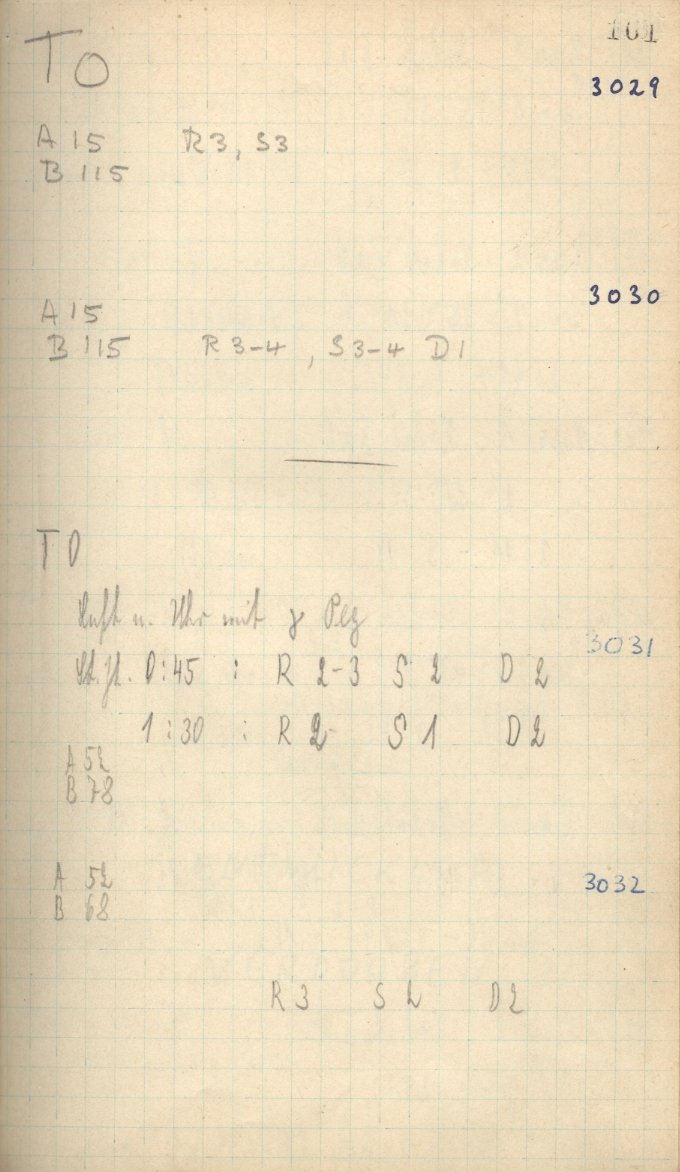 101
TO
3029
A 15 R3, S3
B 115
3030
A 15
B 115 R 3-4, S3-4 D1
TO
Luft u. Uhr mit
3031
0:45 : R 2-3 S 2 D 2
1:30 : R 2- S 1 D 2
A 52
B 78
3032
A 52
B 68
R 3 S 2 D 2